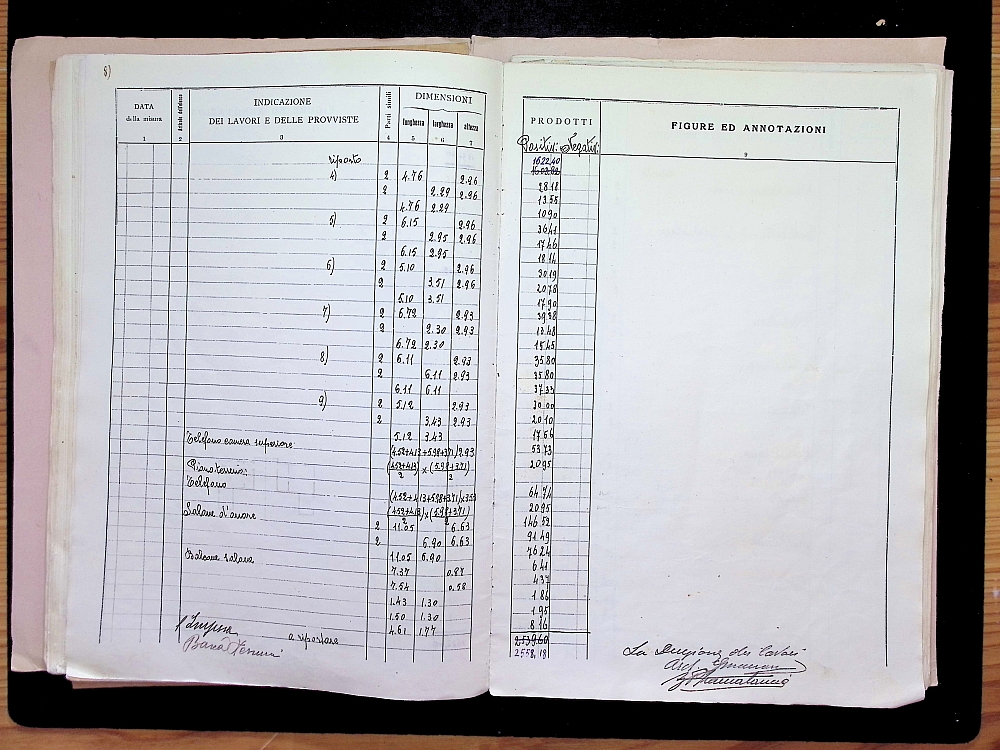 8)
DATA della misura INDICAZIONE DEI LAVORI E DELLE PROVVISTE Parti simili DIMENSIONI
lunghezza larghezza altezza
1 2 3 4 5 6 7
riposto
4) 2 4.76 2.96
2 2.29 2.96
4.76 2.29
5) 2 6.15 2.96
2 2.95 2.96
6.15 2.95
6) 2 5.10 2.96
2 3.51 2.96
5.10 3.51
7) 2 6.72 2.93
2 2.30 2.93
6.72 2.30
8) 2 6.11 2.93
2 6.11 2.93
6.11 6.11
9) 2 5.12 2.93
2 3.43 2.93
5.12 3.43
Telefono camera superiore: (4.52+4.13+5.98+3.71)2.93
Piano terreno: (4.52+4.13)/2 x (5.98+3.71)/2
Telefono
(4.52+4.13+5.98+3.71)x3.53
Salone d'onore (4.52+4.13)/2 x (5.98+3.71)/2
2 11.05 6.63
2 6.90 6.63
Balcone salone 11.05 6.90
7.37 0.87
7.54 0.58
1.43 1.30
1.50 1.30
4.61 1.77
l'Impresa
a riportare
PRODOTTI FIGURE ED ANNOTAZIONI
Positivi: Negativi:
9
1622.40
28.18
13.55
10.90
36.41
17.46
18.14
30.19
20.78
17.90
39.38
13.48
15.45
35.80
35.80
37.33
30.00
20.10
17.56
53.73
20.95
64.74
20.95
146.52
91.49
76.24
6.41
4.37
1.86
1.95
8.16
2539.60
2558.18
La Direzione dei lavori